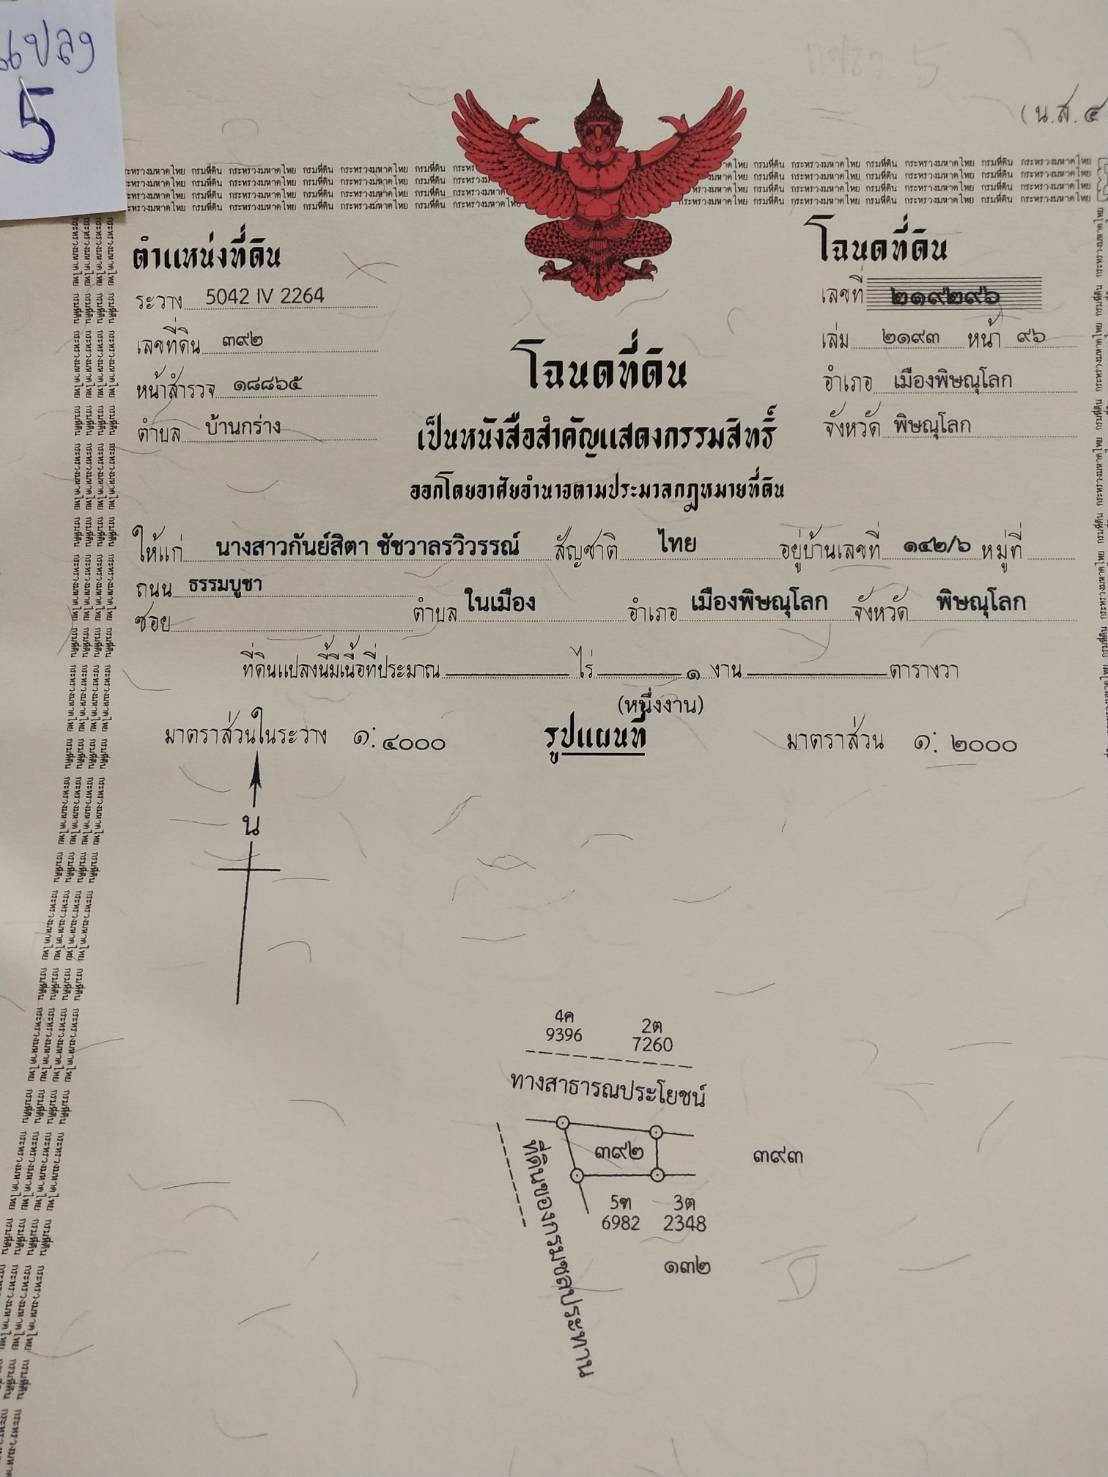 แปลง
5
(น.ส. ๔
ตำแหน่งที่ดิน
ระวาง 5042 IV 2264
เลขที่ดิน ๓๙๒
หน้าสำรวจ ๑๘๘๖๕
ตำบล บ้านกร่าง
โฉนดที่ดิน
เลขที่ ๒๑๙๒๙๖
เล่ม ๒๑๙๓ หน้า ๙๖
อำเภอ เมืองพิษณุโลก
จังหวัด พิษณุโลก
โฉนดที่ดิน
เป็นหนังสือสำคัญแสดงกรรมสิทธิ์
ออกโดยอาศัยอำนาจตามประมวลกฎหมายที่ดิน
ให้แก่ นางสาวกันย์สิตา ชัชวาลรวิวรรณ์ สัญชาติ ไทย อยู่บ้านเลขที่ ๑๔๒/๖ หมู่ที่
ถนน ธรรมบูชา
ซอย ตำบล ในเมือง อำเภอ เมืองพิษณุโลก จังหวัด พิษณุโลก
ที่ดินแปลงนี้มีเนื้อที่ประมาณ ไร่ ๑ งาน ตารางวา
(หนึ่งงาน)
มาตราส่วนในระวาง ๑: ๔๐๐๐ รูปแผนที่ มาตราส่วน ๑: ๒๐๐๐
น
4ค 2ต
9396 7260
ทางสาธารณประโยชน์
๓๙๒ ๓๙๓
5ฑ 3ต
6982 2348
๑๓๒
ที่ดินของกรมชลประทาน